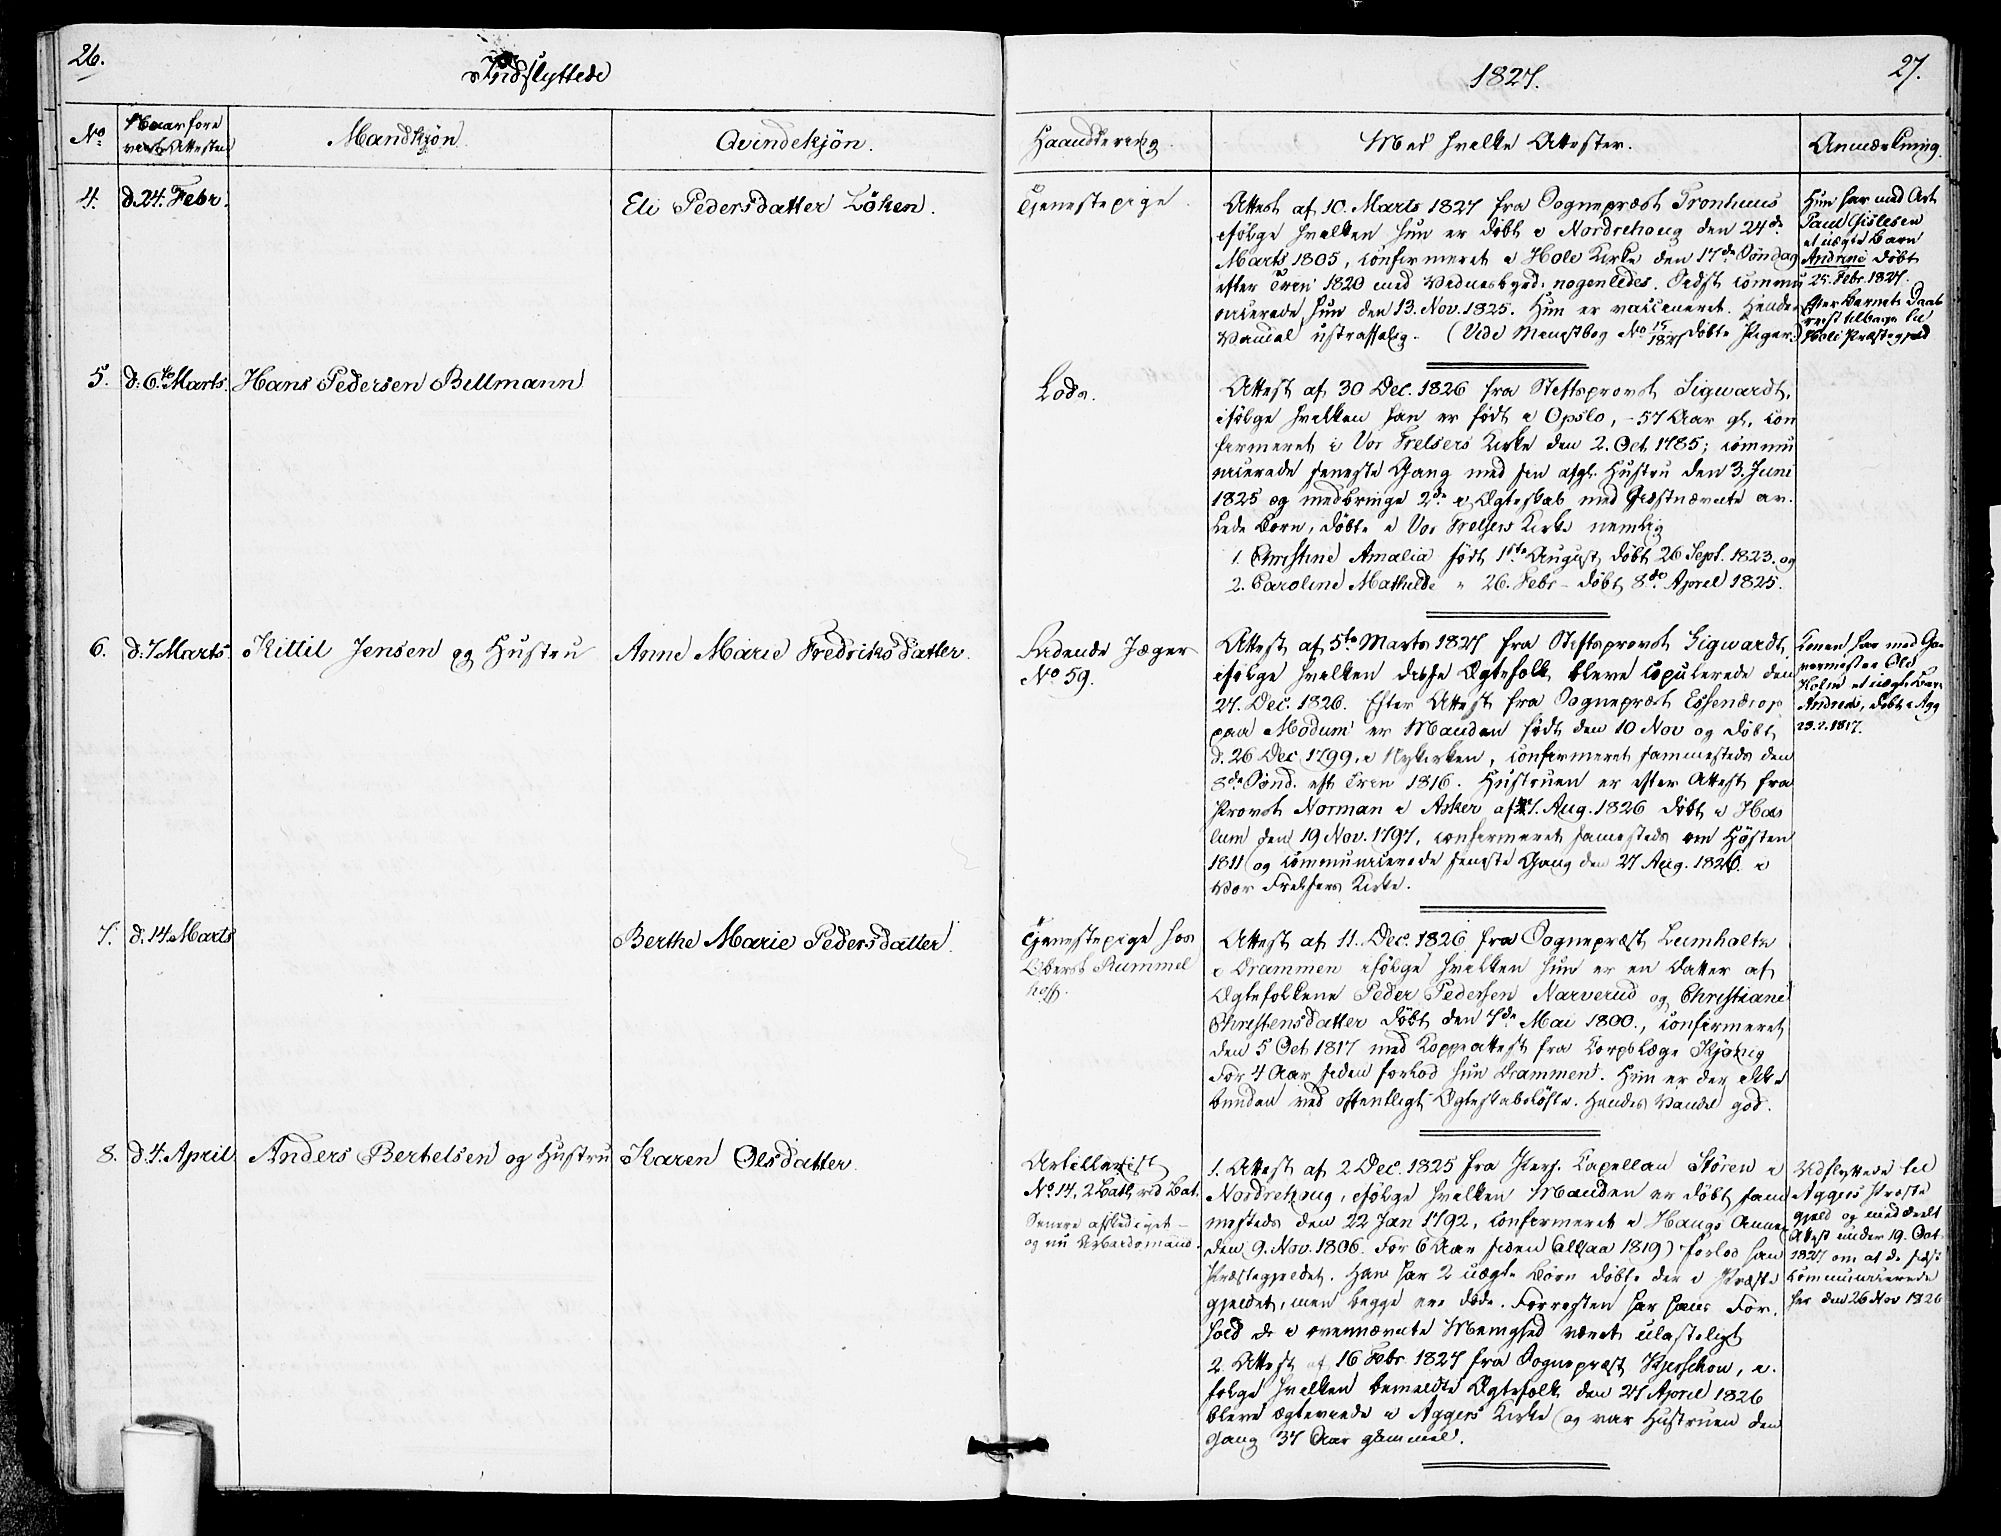 26.
Indflyttede
No
Mandkjøn.
Qvindekjøn.
4.
d. 24. Febr.
Eli Pedersdatter Löken.
5.
d. 6te Marts.
Hans Pedersen Bellmann
6.
d. 7 Marts.
Kittil Jensen og Hustru
Anne Marie Fredriksdatter.
7.
d. 14 Marts
Berthe Marie Pedersdatter.
8.
d. 4. April
Anders Bertelsen og Hustru
Karen Olsdatter.
1827.
27.
Haandtering.
Med hvilke Attester.
Anmærkning.
Tjenestepige.
Attest af 10. Marts 1827 fra Sognepræst
ifölge hvilken hun er döbt i Nordrehoug den 24de
Marts 1805, confirmeret i Hole Kirke den 17de Söndag
efter Trin 1820 med Vidnesbyrd: nogenledes. Sidst commu
nicerede hun den 13. Nov. 1825. Hun er vaccineret. Hendes
Vandel ustraffelig. (Vide No 15/1827 döbte Piger.)
Hun har med
Paul Gislesen
et uægte Barn
Andrine döbt
25. Febr. 1827.
Efter Barnets Daab
reist tilbage til
Hole Præstegjeld
Lods.
Attest af 30 Dec. 1826 fra Stiftsprovst Sigwardt,
ifölge hvilken han er födt i Opslo, - 57 Aar gl, con
firmeret i Vor Frelsers Kirke den 2. Oct 1785; commu
nicerede seneste Gang med sin afgl. Hustru den 3. Juni
1825 og medbringe 2de i Ægteskab med sidstnævnte av
lede Börn, döbte i Vor Frelsers Kirke nemlig
1. Christine Amalia födt 1ste August, döbt 26 Sept. 1823. og
2. Caroline Mathilde " 26. Febr - döbt 8de April 1825.
Ridende Jæger
No 59.
Attest af 5te Marts 1827 fra Stiftsprovst Sigwardt,
ifölge hvilken disse Ægtefolk bleve copulerede den
27. Dec. 1826. Efter Attest fra Sognepræst Essendrop
paa Modum er Manden födt den 10 Nov og döbt
d. 26 Dec 1799, i Nykirken, confirmeret sammesteds den
8de Sönd. eft Trin 1816. Hustruen er efter Attest fra
Provst Norman i Asker af 1. Aug. 1826 döbt i Has
lum den 19 Nov. 1797, confirmeret samesteds om Hösten
1811 og communicerede seneste Gang den 27 Aug. 1826. i
Vor Frelsers Kirke.
Konen har med
Holm et uægte Barn
Andreas, döbt i Agg
23.2.1817.
Tjenestepige hos
Oberst Rummel
hoff.
Attest af 11. Dec. 1826 fra Sognepræst Lumholtz
i Drammen ifölge hvilken hun er en Datter af
Ægtefolkene Peder Pedersen Narverud og Christiane
Christensdatter döbt den 7de Mai 1800., confirmeret
den 5 Oct 1817 med Koppeattest fra Corpslæge
For 4 Aar siden forlod hun Drammen. Hun er der ikke
bunden ved offentligt Ægteskabslöfte. Hendes Vandel god.
Artillerist
No 14, 2 Batl, rid Bat.
Senere afskediget -
og nu Arbeidsmand.
1. Attest af 2 Dec. 1825 fra Pers. Capellan Stören i
Nordrehoug, ifölge hvilken Manden er döbt sam
mesteds den 22 Jan 1792, confirmeret i Haugs Annex
den 9. Nov. 1806. For 6 Aar siden (altsaa 1819) forlod han
Præstegjeldet. Han har 2 uægte Börn döbte der i Præste
gjeldet, men begge ere döde. Forresten har hans For-
hold der i overnævnte Menighed været ulasteligt
2. Attest af 16 Febr. 1827 fra Sognepræst Kjerschow, i-
fölge hvilken bemeldte Ægtefolk den 27 April 1826
bleve ægteviede i Aggers Kirke og var Hustruen den
Gang 37 Aar gammel.
Udflyttede til
Aggers Præste
gjeld og meddeelt
Attest under 19. Oct.
1827 om at de sidst
communicerede
her den 26 Nov 1826